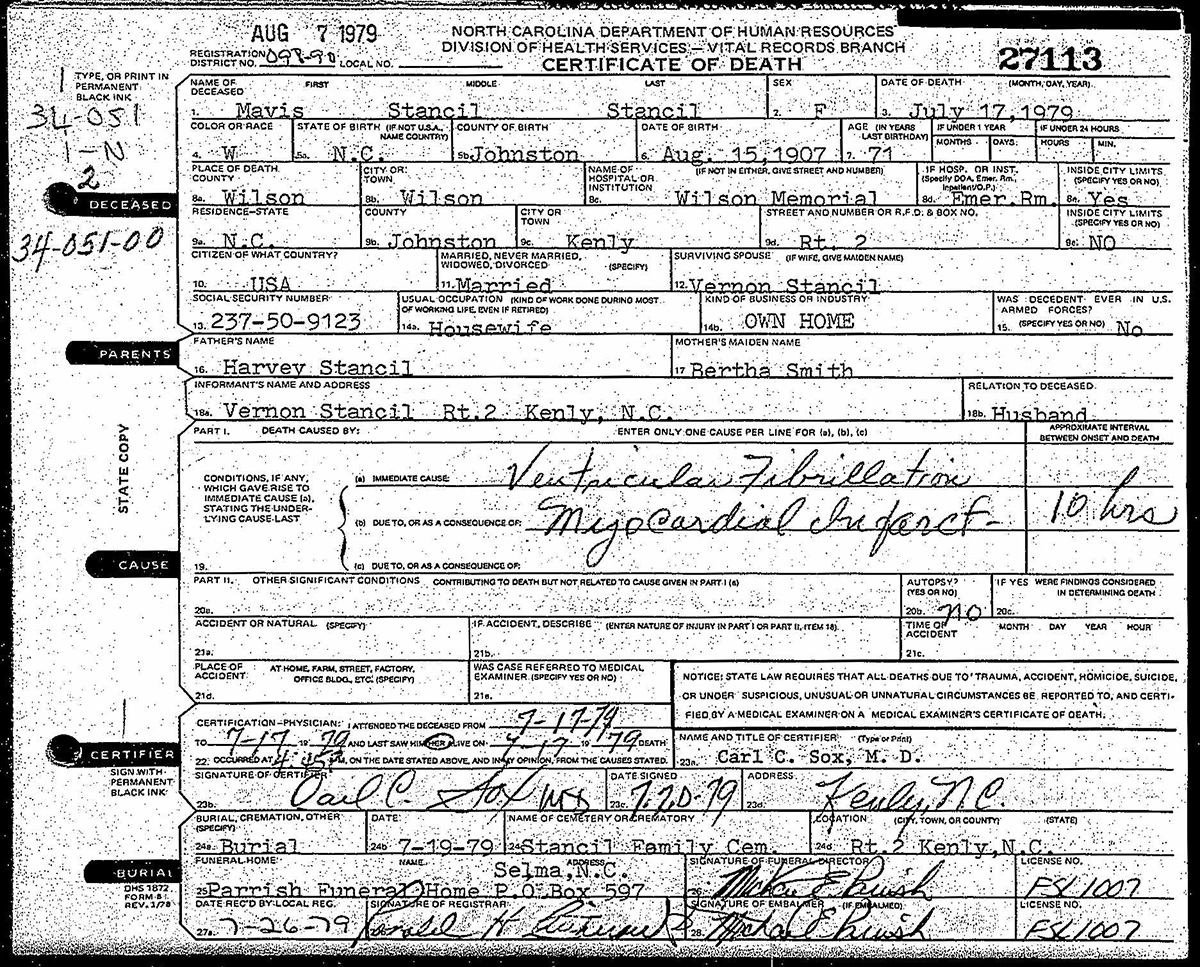 AUG 7 1979
NORTH CAROLINA DEPARTMENT OF HUMAN RESOURCES
DIVISION OF HEALTH SERVICES – VITAL RECORDS BRANCH
CERTIFICATE OF DEATH
27113
REGISTRATION DISTRICT NO. 098-90 LOCAL NO.
TYPE, OR PRINT IN PERMANENT BLACK INK
34-051
1-N
2
DECEASED
34-051-00
NAME OF DECEASED FIRST MIDDLE LAST SEX DATE OF DEATH (MONTH, DAY, YEAR)
1. Mavis Stancil Stancil 2. F 3. July 17,1979
COLOR OR RACE STATE OF BIRTH (IF NOT U.S.A., NAME COUNTRY) COUNTY OF BIRTH DATE OF BIRTH AGE (IN YEARS LAST BIRTHDAY) IF UNDER 1 YEAR IF UNDER 24 HOURS
MONTHS DAYS HOURS MIN.
4. W 5a. N.C. 5b. Johnston 6. Aug. 15,1907 7. 71
PLACE OF DEATH COUNTY CITY OR TOWN NAME OF HOSPITAL OR INSTITUTION (IF NOT IN EITHER, GIVE STREET AND NUMBER) IF HOSP. OR INST. (Specify DOA, Emer. Rm., Inpatient/O.P.) INSIDE CITY LIMITS (SPECIFY YES OR NO)
8a. Wilson 8b. Wilson 8c. Wilson Memorial 8d. Emer.Rm. 8e. Yes
RESIDENCE–STATE COUNTY CITY OR TOWN STREET AND NUMBER OR R.F.D. & BOX NO. INSIDE CITY LIMITS (SPECIFY YES OR NO)
9a. N.C. 9b. Johnston 9c. Kenly 9d. Rt. 2 9e. NO
CITIZEN OF WHAT COUNTRY? MARRIED, NEVER MARRIED, WIDOWED, DIVORCED (SPECIFY) SURVIVING SPOUSE (IF WIFE, GIVE MAIDEN NAME)
10. USA 11. Married 12. Vernon Stancil
SOCIAL SECURITY NUMBER USUAL OCCUPATION (KIND OF WORK DONE DURING MOST OF WORKING LIFE, EVEN IF RETIRED) KIND OF BUSINESS OR INDUSTRY WAS DECEDENT EVER IN U.S. ARMED FORCES? (SPECIFY YES OR NO)
13. 237-50-9123 14a. Housewife 14b. OWN HOME 15. No
PARENTS
FATHER'S NAME MOTHER'S MAIDEN NAME
16. Harvey Stancil 17 Bertha Smith
INFORMANT'S NAME AND ADDRESS RELATION TO DECEASED
18a. Vernon Stancil Rt.2 Kenly, N.C. 18b. Husband
STATE COPY
PART I. DEATH CAUSED BY: ENTER ONLY ONE CAUSE PER LINE FOR (a), (b), (c) APPROXIMATE INTERVAL BETWEEN ONSET AND DEATH
CONDITIONS, IF ANY, WHICH GAVE RISE TO IMMEDIATE CAUSE (a), STATING THE UNDERLYING CAUSE LAST
(a) IMMEDIATE CAUSE: Ventricular Fibrillation
(b) DUE TO, OR AS A CONSEQUENCE OF: Myocardial Infarct 10 hrs
CAUSE
19. (c) DUE TO, OR AS A CONSEQUENCE OF:
PART II. OTHER SIGNIFICANT CONDITIONS CONTRIBUTING TO DEATH BUT NOT RELATED TO CAUSE GIVEN IN PART I (a) AUTOPSY? (YES OR NO) IF YES WERE FINDINGS CONSIDERED IN DETERMINING DEATH
20a. 20b. NO 20c.
ACCIDENT OR NATURAL (SPECIFY) IF ACCIDENT, DESCRIBE (ENTER NATURE OF INJURY IN PART I OR PART II, ITEM 18) TIME OF ACCIDENT MONTH DAY YEAR HOUR
21a. 21b. 21c.
PLACE OF ACCIDENT AT HOME, FARM, STREET, FACTORY, OFFICE BLDG., ETC. (SPECIFY) WAS CASE REFERRED TO MEDICAL EXAMINER (SPECIFY YES OR NO)
21d. 21e.
NOTICE: STATE LAW REQUIRES THAT ALL DEATHS DUE TO TRAUMA, ACCIDENT, HOMICIDE, SUICIDE,
OR UNDER SUSPICIOUS, UNUSUAL OR UNNATURAL CIRCUMSTANCES BE REPORTED TO, AND CERTI-
FIED BY A MEDICAL EXAMINER ON A MEDICAL EXAMINER'S CERTIFICATE OF DEATH.
CERTIFIER
CERTIFICATION–PHYSICIAN: I ATTENDED THE DECEASED FROM 7-17-79
TO 7-17 1979 AND LAST SAW HIM/HER ALIVE ON 7-17 1979 DEATH
22. OCCURRED AT M, ON THE DATE STATED ABOVE, AND IN MY OPINION, FROM THE CAUSES STATED.
NAME AND TITLE OF CERTIFIER (Type or Print)
23a. Carl C. Sox, M. D.
SIGN WITH PERMANENT BLACK INK
SIGNATURE OF CERTIFIER DATE SIGNED ADDRESS
23b. Carl C. Sox MD 23c. 7-20-79 23d. Kenly, N.C.
BURIAL, CREMATION, OTHER (SPECIFY) DATE NAME OF CEMETERY OR CREMATORY LOCATION (CITY, TOWN, OR COUNTY) (STATE)
24a. Burial 24b 7-19-79 24c Stancil Family Cem. 24d Rt.2 Kenly,N.C.
BURIAL
DHS 1872
FORM 8
REV. 1/78
FUNERAL HOME NAME ADDRESS SIGNATURE OF FUNERAL DIRECTOR LICENSE NO.
Selma,N.C.
25 Parrish Funeral Home P.O Box 597 26. Michael E Parrish FSL1007
DATE REC'D BY LOCAL REG. SIGNATURE OF REGISTRAR SIGNATURE OF EMBALMER (IF EMBALMED) LICENSE NO.
27a. 7-26-79 28. Michael E Parrish FSL1007